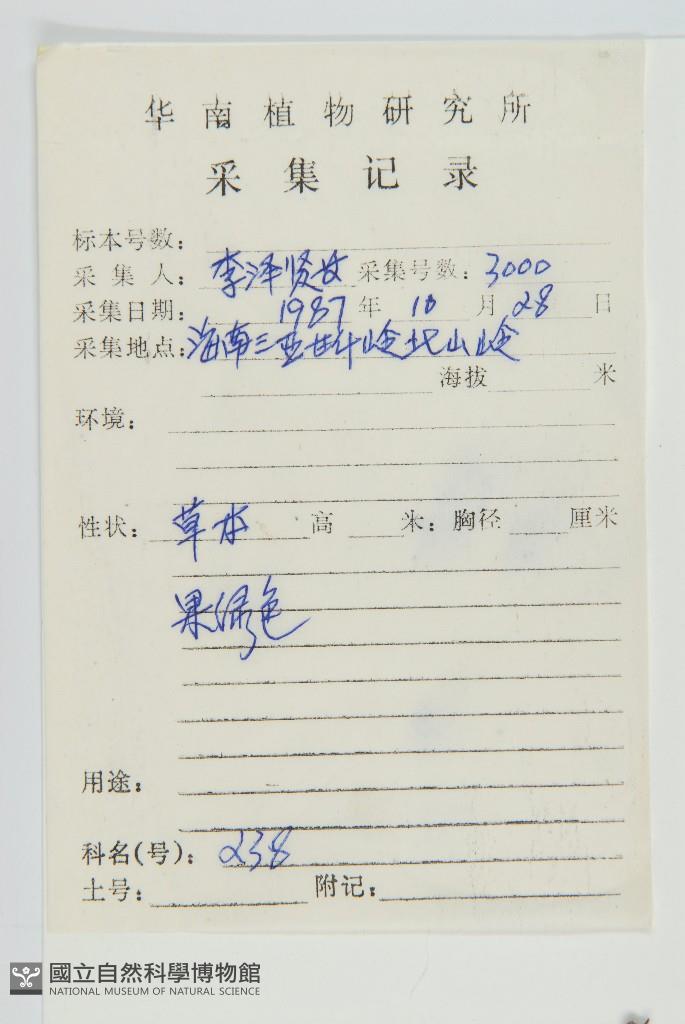 华南植物研究所
采集记录
标本号数：
采集人：李泽贤等 采集号数：3000
采集日期：1987年10月28日
采集地点：海南三亚甘什岭北山岭
海拔 米
环境：
性状：草本 高 米：胸径 厘米
果绿色
用途：
科名(号)：238
土号： 附记：
國立自然科學博物館
NATIONAL MUSEUM OF NATURAL SCIENCE